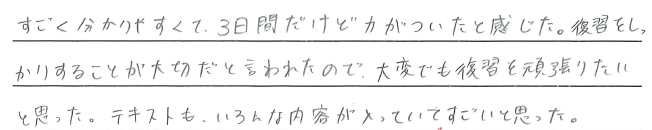 すごく分かりやすくて、3日間だけど力がついたと感じた。復習をしっ
かりすることが大切だと言われたので、大変でも復習を頑張りたい
と思った。テキストも、いろんな内容が入っていてすごいと思った。